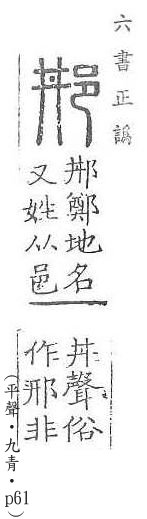 六書正譌
鄭地名
又姓从邑
丼聲俗
作邢非
（平聲・九青・p61）